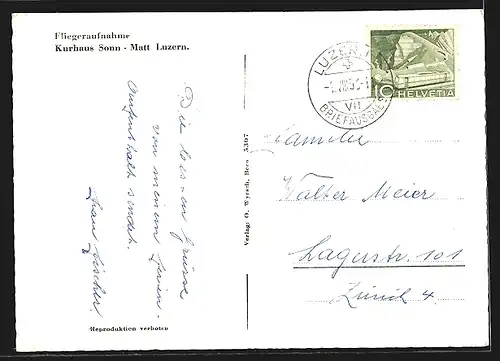 Fliegeraufnahme
Kurhaus Sonn - Matt Luzern.
Die besten Grüsse
von meinem
Aufenthalt sendet.
Frau Fischer
Reproduktion verboten
Verlag: O. Wyrsch, Bern 5307
LUZERN
VII
BRIEFAUSGABE
10 HELVETIA
Familie
Walter Meier
Lagerstr. 101
Zürich 4.